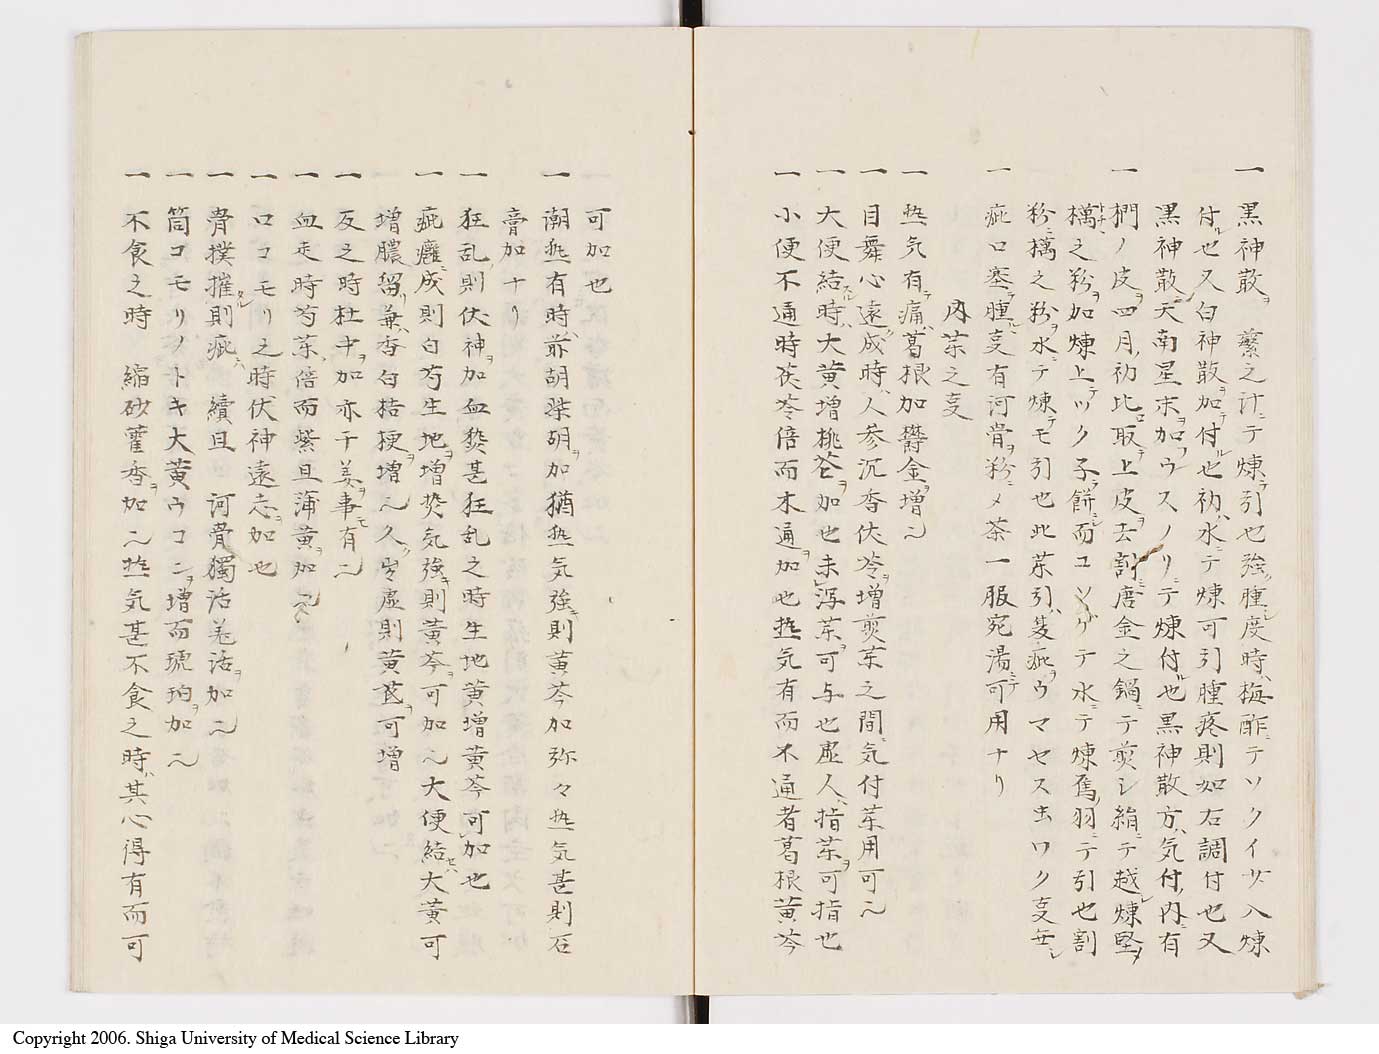 一 黒神散ヲ 蘩之汁ニテ煉テ引也強ク腫レ度時ハ梅酢ニテソクイサ入煉
付ル也又白神散ヲ加テ付ル也初ハ水ニテ煉可引腫疼則如右調付也又
黒神散ニ天南星末ヲ加ウスノリニテ煉付ル也黒神散方ハ気付ノ内ニ有
一 椚ノ皮ヲ四月ノ初比ロ取テ上皮ヲ去割ミ唐金之鍋ニテ煎シ絹ニテ越煉堅メ
橋之粉ヲ加煉上テツク子テ餅ニシ而コソゲテ水ニテ煉鳫ノ羽ニテ引也割
粉ニ橋之粉ヲ水ニテ煉テモ引也此茱引ハ疵ヲウマセス虫ワク㕝無シ
一 疵口塞テ腫ル㕝有河骨ヲ粉ニメ茶一服宛湯ニテ可用ナリ
内茱之㕝
一 熱気有テ痛ハ葛根加欝金ヲ増ヘ
一 目舞心遠ク成時ハ人参沉香伏苓増煎茱之間ニ気付茱用可ヘ
一 大便結スル時ハ大黄増桃仁ヲ加也未レ瀉茱ヲ可与也虚人ハ指茱ヲ可指也
一 小便不通時茯苓倍而木通ヲ加也熱気有而不通者葛根黄芩
可加也
一 潮熱有時ハ前胡柴胡ヲ加猶熱気強ハ則黄芩加弥々熱気甚則石
膏加ナリ
一 狂乱則伏神ヲ加血發甚狂乱之時生地黄増黄芩可加也
一 疵癰ニ成則白芍生地ヲ増熱気強キ則黄芩ヲ可加ヘ大便結セハ大黄可
増膿留リ兼ハ香白桔梗ヲ増ヘ久ク虚則黄芪ヲ可増
一 反之時杜中ヲ加亦干姜ヲ事モ有ヘ
一 血走時芎茱倍而紫且蒲黄ヲ加ヘ
一 口コモリ之時伏神遠志ヲ加也
一 骨撲摧タル則疵ハ 續且 河骨獨活羌活ヲ加ヘ
一 筒コモリノトキ大黄ウコンヲ増而琥珀ヲ加ヘ
一 不食之時 縮砂藿香ヲ加ヘ熱気甚不食之時ハ其心得有而可